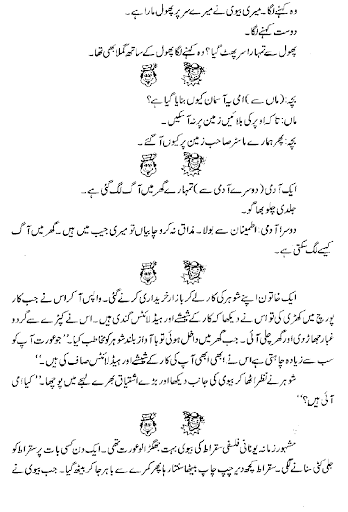 وہ کہنے لگا۔ میری بیوی نے میرے سر پر پھول مارا ہے۔
دوست کہنے لگا۔
پھول سے تمہارا سر پھٹ گیا؟ وہ کہنے لگا پھول کے ساتھ گملا بھی تھا۔
بچہ: (ماں سے) امی یہ آسمان کیوں بنایا گیا ہے؟
ماں: تاکہ اوپر کی بلائیں زمین پر نہ آ سکیں۔
بچہ: پھر ہمارے ماسٹر صاحب زمین پر کیوں آ گئے۔
ایک آدمی (دوسرے آدمی سے) تمہارے گھر میں آگ لگ گئی ہے۔
جلدی چلو بھاگو۔
دوسرا آدمی: اطمینان سے بولا۔ مذاق نہ کرو چابیاں تو میری جیب میں ہیں۔ گھر میں آگ
کیسے لگ سکتی ہے۔
ایک خاتون اپنے شوہر کی کار لے کر بازار خریداری کرنے گئی۔ واپس آ کر اس نے جب کار
پورچ میں کھڑی کی تو اس نے دیکھا کہ کار کے شیشے اور ہیڈ لائٹس گندی ہیں۔ اس نے کپڑے سے گرد و
غبار جھاڑ دی اور گھر چلی آئی۔ جب گھر میں داخل ہوئی تو با آواز بلند شوہر کو مخاطب کیا۔ ”جو عورت آپ کو
سب سے زیادہ چاہتی ہے اس نے ابھی ابھی آپ کی کار کے شیشے اور ہیڈ لائٹس صاف کی ہیں۔“
شوہر نے نظر اٹھا کر بیوی کی جانب دیکھا اور بڑے اشتیاق بھرے لہجے میں پوچھا۔ ”کیا امی
آئی ہیں؟“
مشہور زمانہ یونانی فلسفی سقراط کی بیوی بہت جھگڑالو عورت تھی۔ ایک دن کسی بات پر سقراط کو
جلی کٹی سنانے لگی۔ سقراط کچھ دیر چپ چاپ بیٹھا سنتا رہا پھر کمرے سے باہر جا کر بیٹھ گیا۔ جب بیوی نے